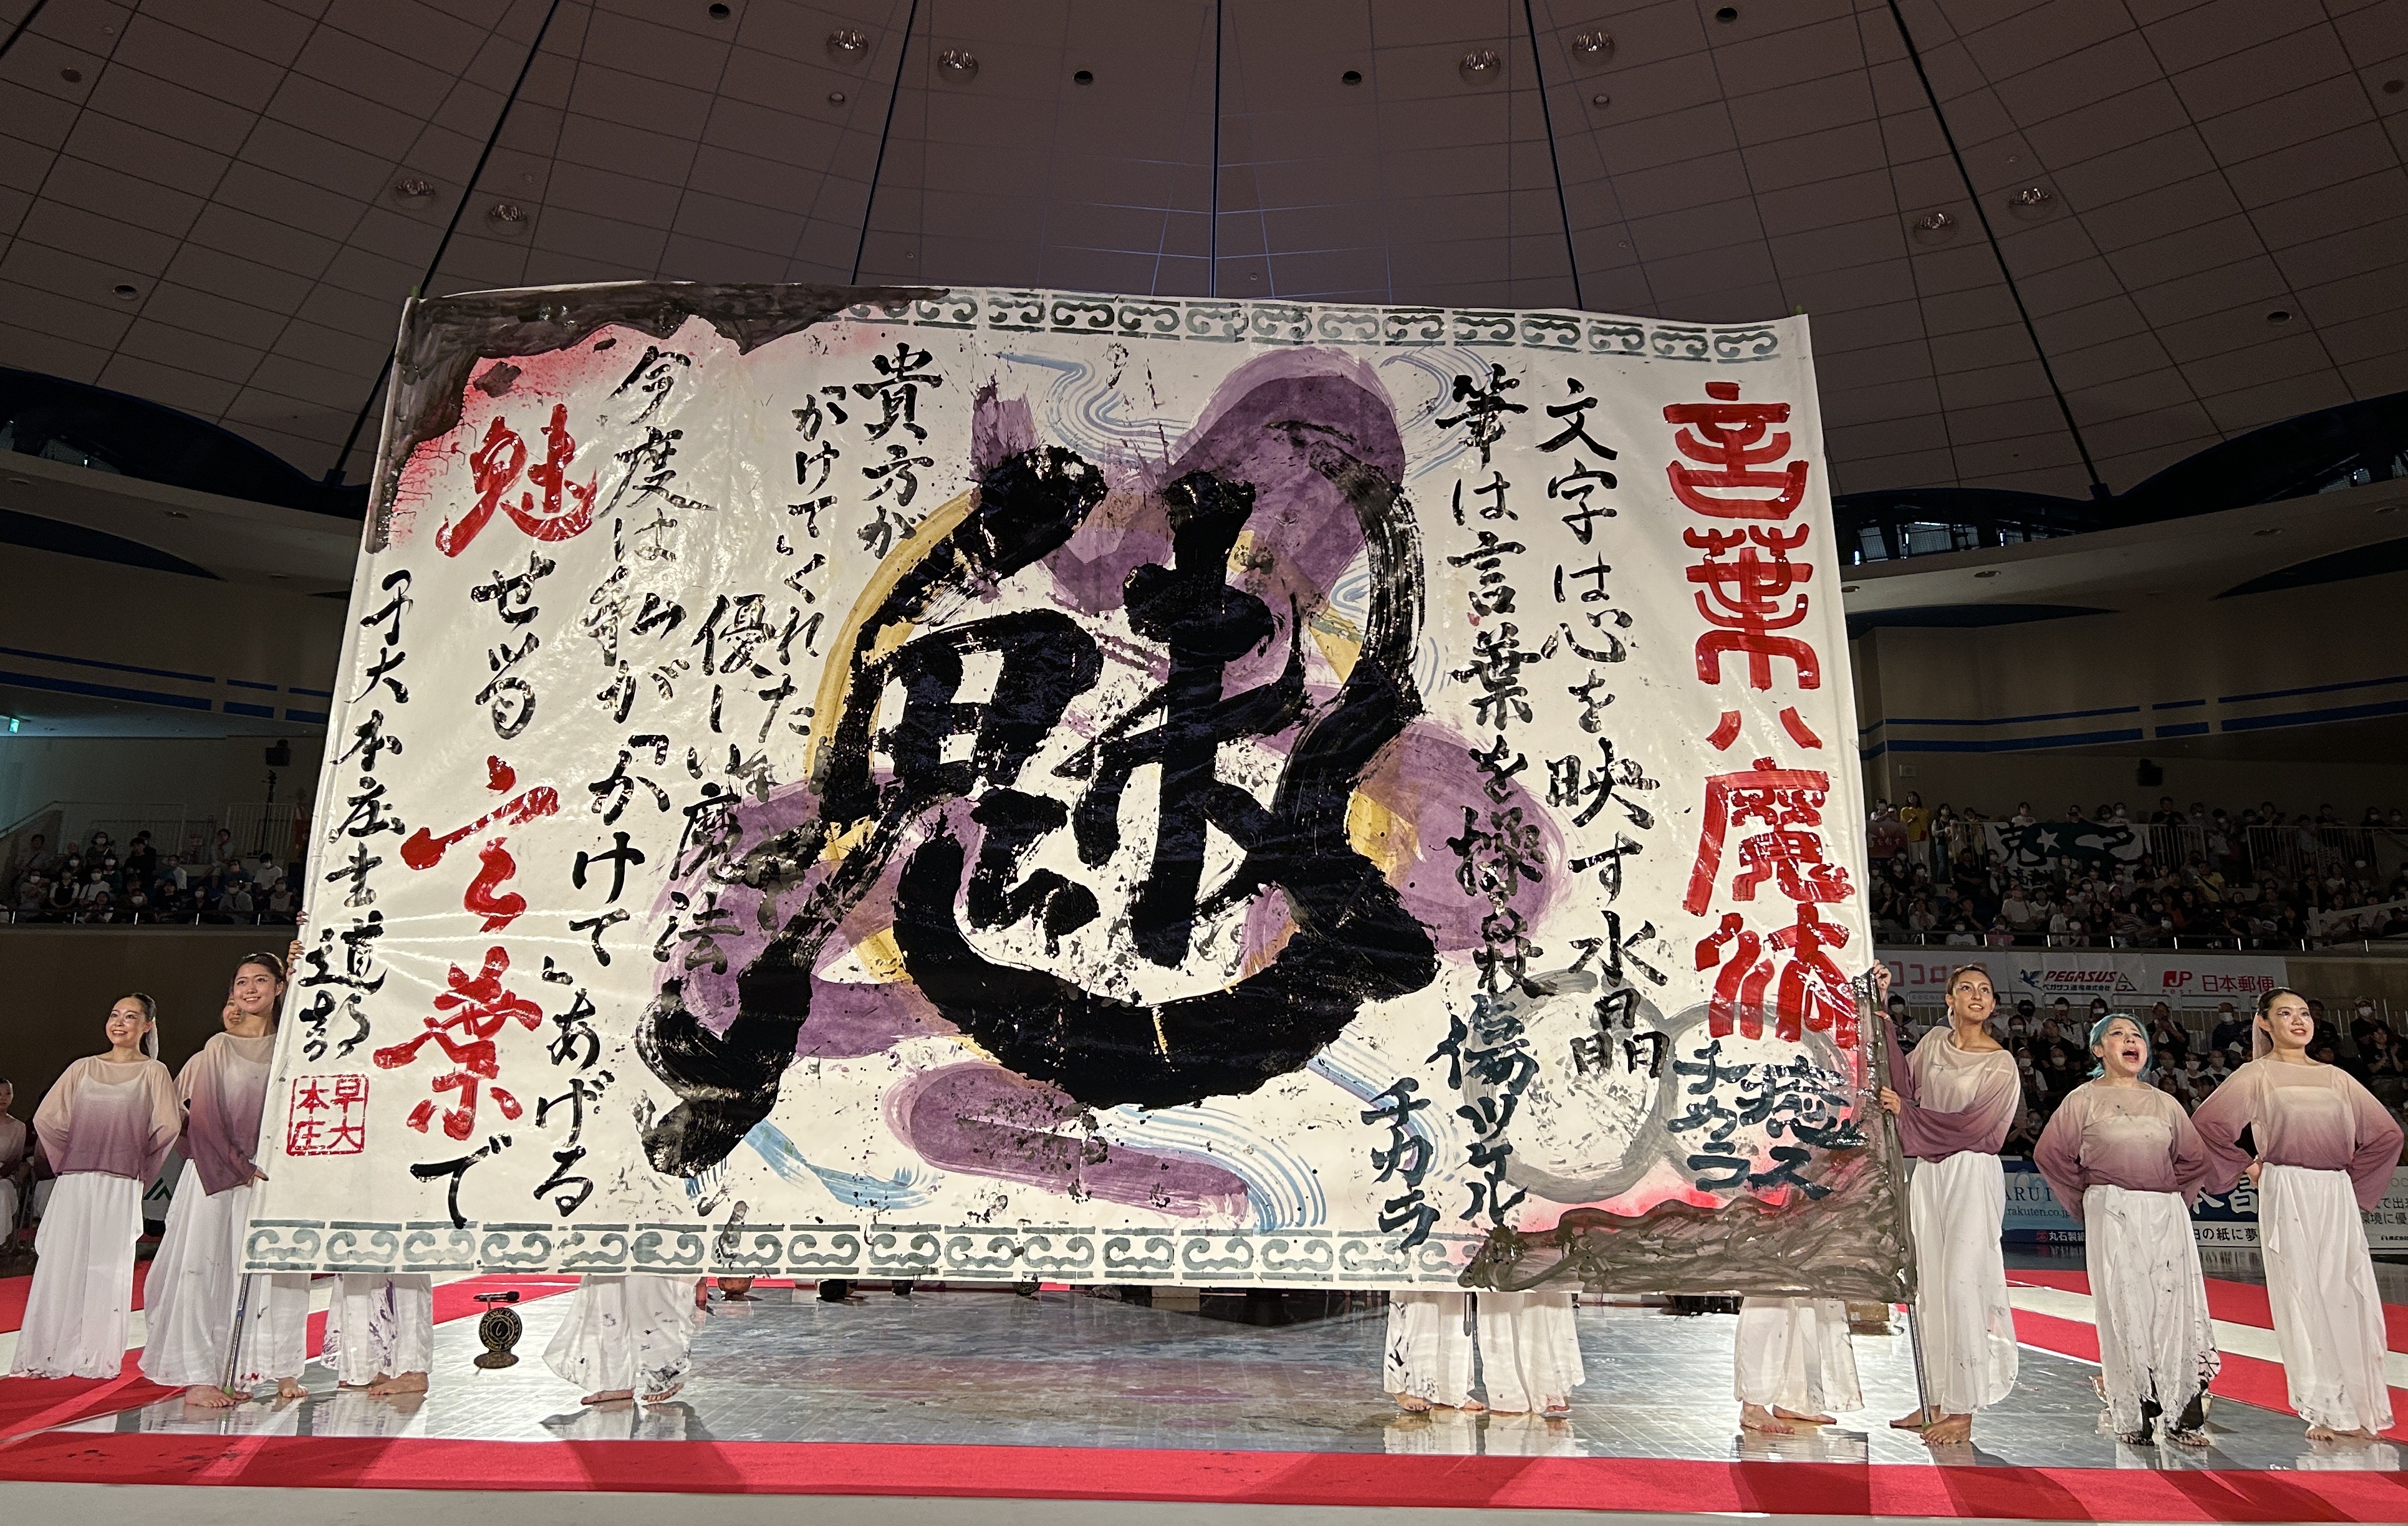 言葉ハ魔法
癒ス
チカラ
文字は心を映す水晶
筆は言葉を操る杖
傷ツケル
チカラ
魅
貴方が
がけてくれた
優しい魔法
今度は私が
かけてあげる
魅せる言葉で
早大本庄書道部
早大
本庄
PEGASUS
JP
POST
日本郵便
rakuten.co.jp
丸石製紙